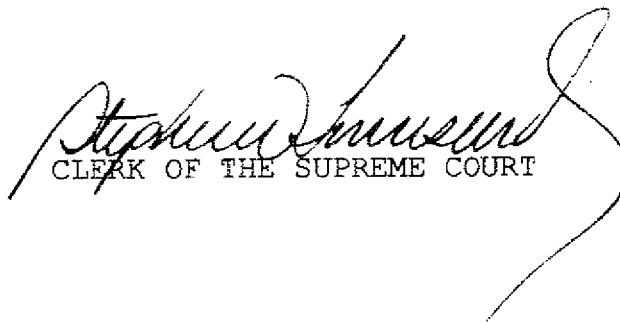 Stephen Townsend
CLERK OF THE SUPREME COURT